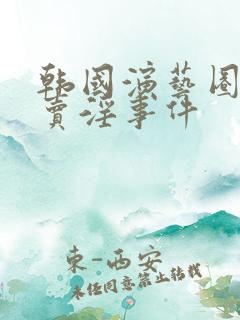 韩国演艺圈
卖淫事件
東-西安
未经同意禁止转载